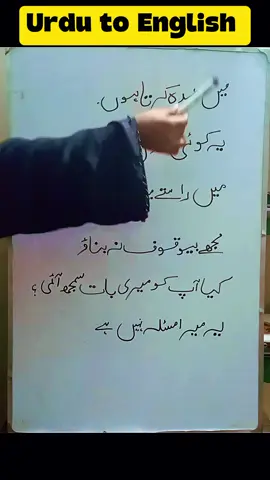 Urdu to English
میں کرتا ہوں.
یہ کوئی
میں راستے
مجھے بیوقوف نہ بناؤ
کیا آپ کو میری بات سمجھ آئی؟
یہ میرا مسئلہ نہیں ہے